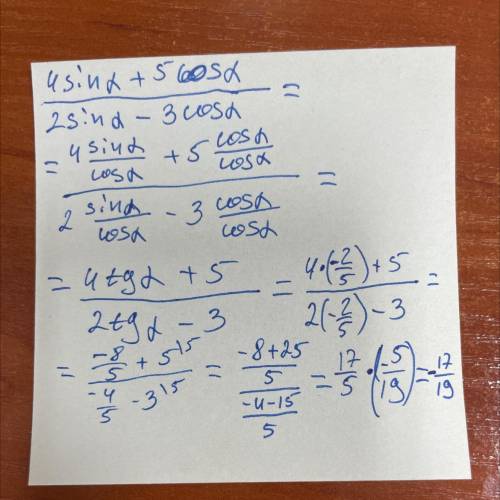 4sinα + 5cosα / 2sinα - 3cosα =
= 4 sinα/cosα + 5 cosα/cosα / 2 sinα/cosα - 3 cosα/cosα =
= 4tgα + 5 / 2tgα - 3 = 4·(-2/5) + 5 / 2(-2/5) - 3 =
= -8/5 + 5^15 / -4/5 - 3^15 = -8+25/5 / -4-15/5 = 17/5 · (-5/19) = -17/19